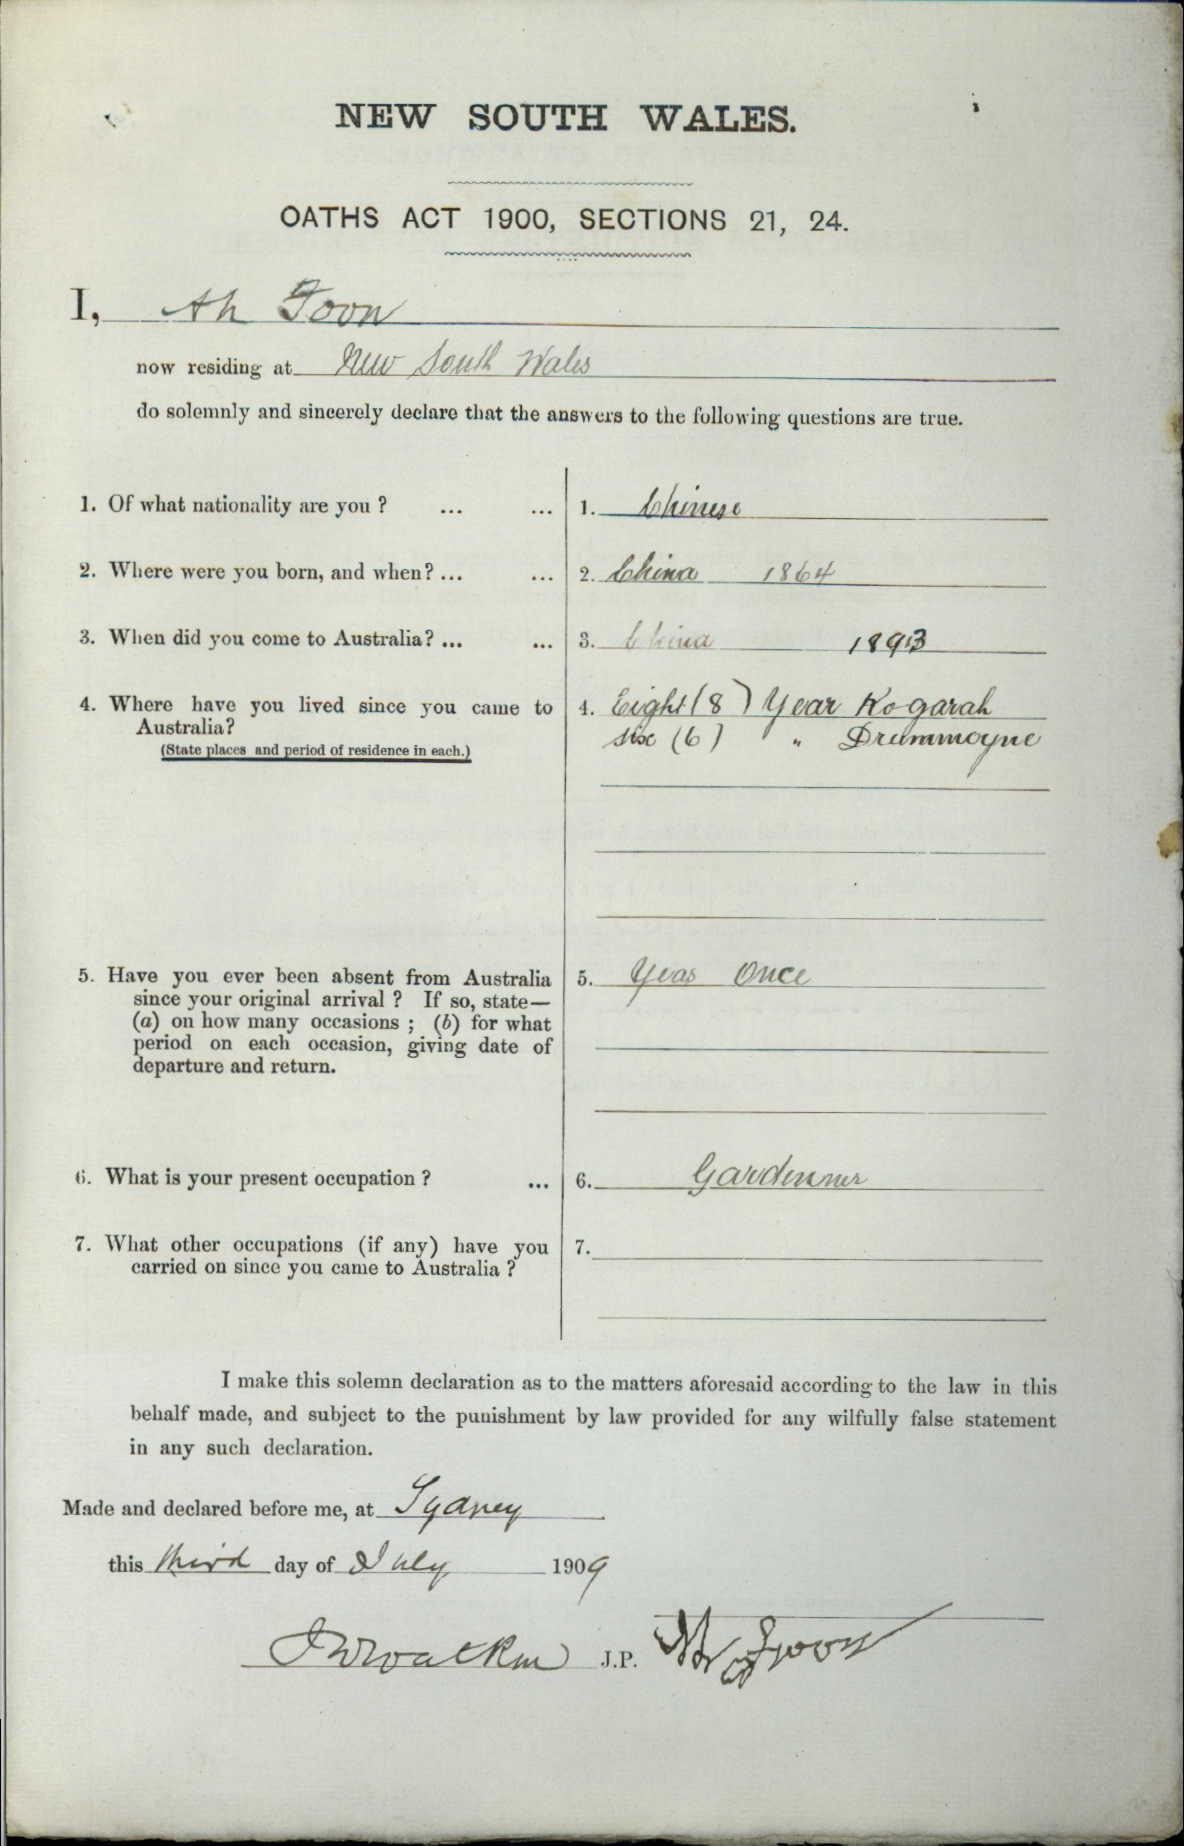 NEW SOUTH WALES.
OATHS ACT 1900, SECTIONS 21, 24.
I, Ah Foon
now residing at New South Wales
do solemnly and sincerely declare that the answers to the following questions are true.
1. Of what nationality are you ? ... ... 1. Chinese
2. Where were you born, and when? ... ... 2. China 1864
3. When did you come to Australia? ... ... 3. China 1893
4. Where have you lived since you came to 4. Eight (8) Year Kogarah
Australia? six (6) " Drummoyne
(State places and period of residence in each.)
5. Have you ever been absent from Australia 5. Yeas Once
since your original arrival ? If so, state—
(a) on how many occasions ; (b) for what
period on each occasion, giving date of
departure and return.
6. What is your present occupation ? ... 6. Gardenner
7. What other occupations (if any) have you 7.
carried on since you came to Australia ?
I make this solemn declaration as to the matters aforesaid according to the law in this
behalf made, and subject to the punishment by law provided for any wilfully false statement
in any such declaration.
Made and declared before me, at Sydney
this third day of July 1909
J.P.